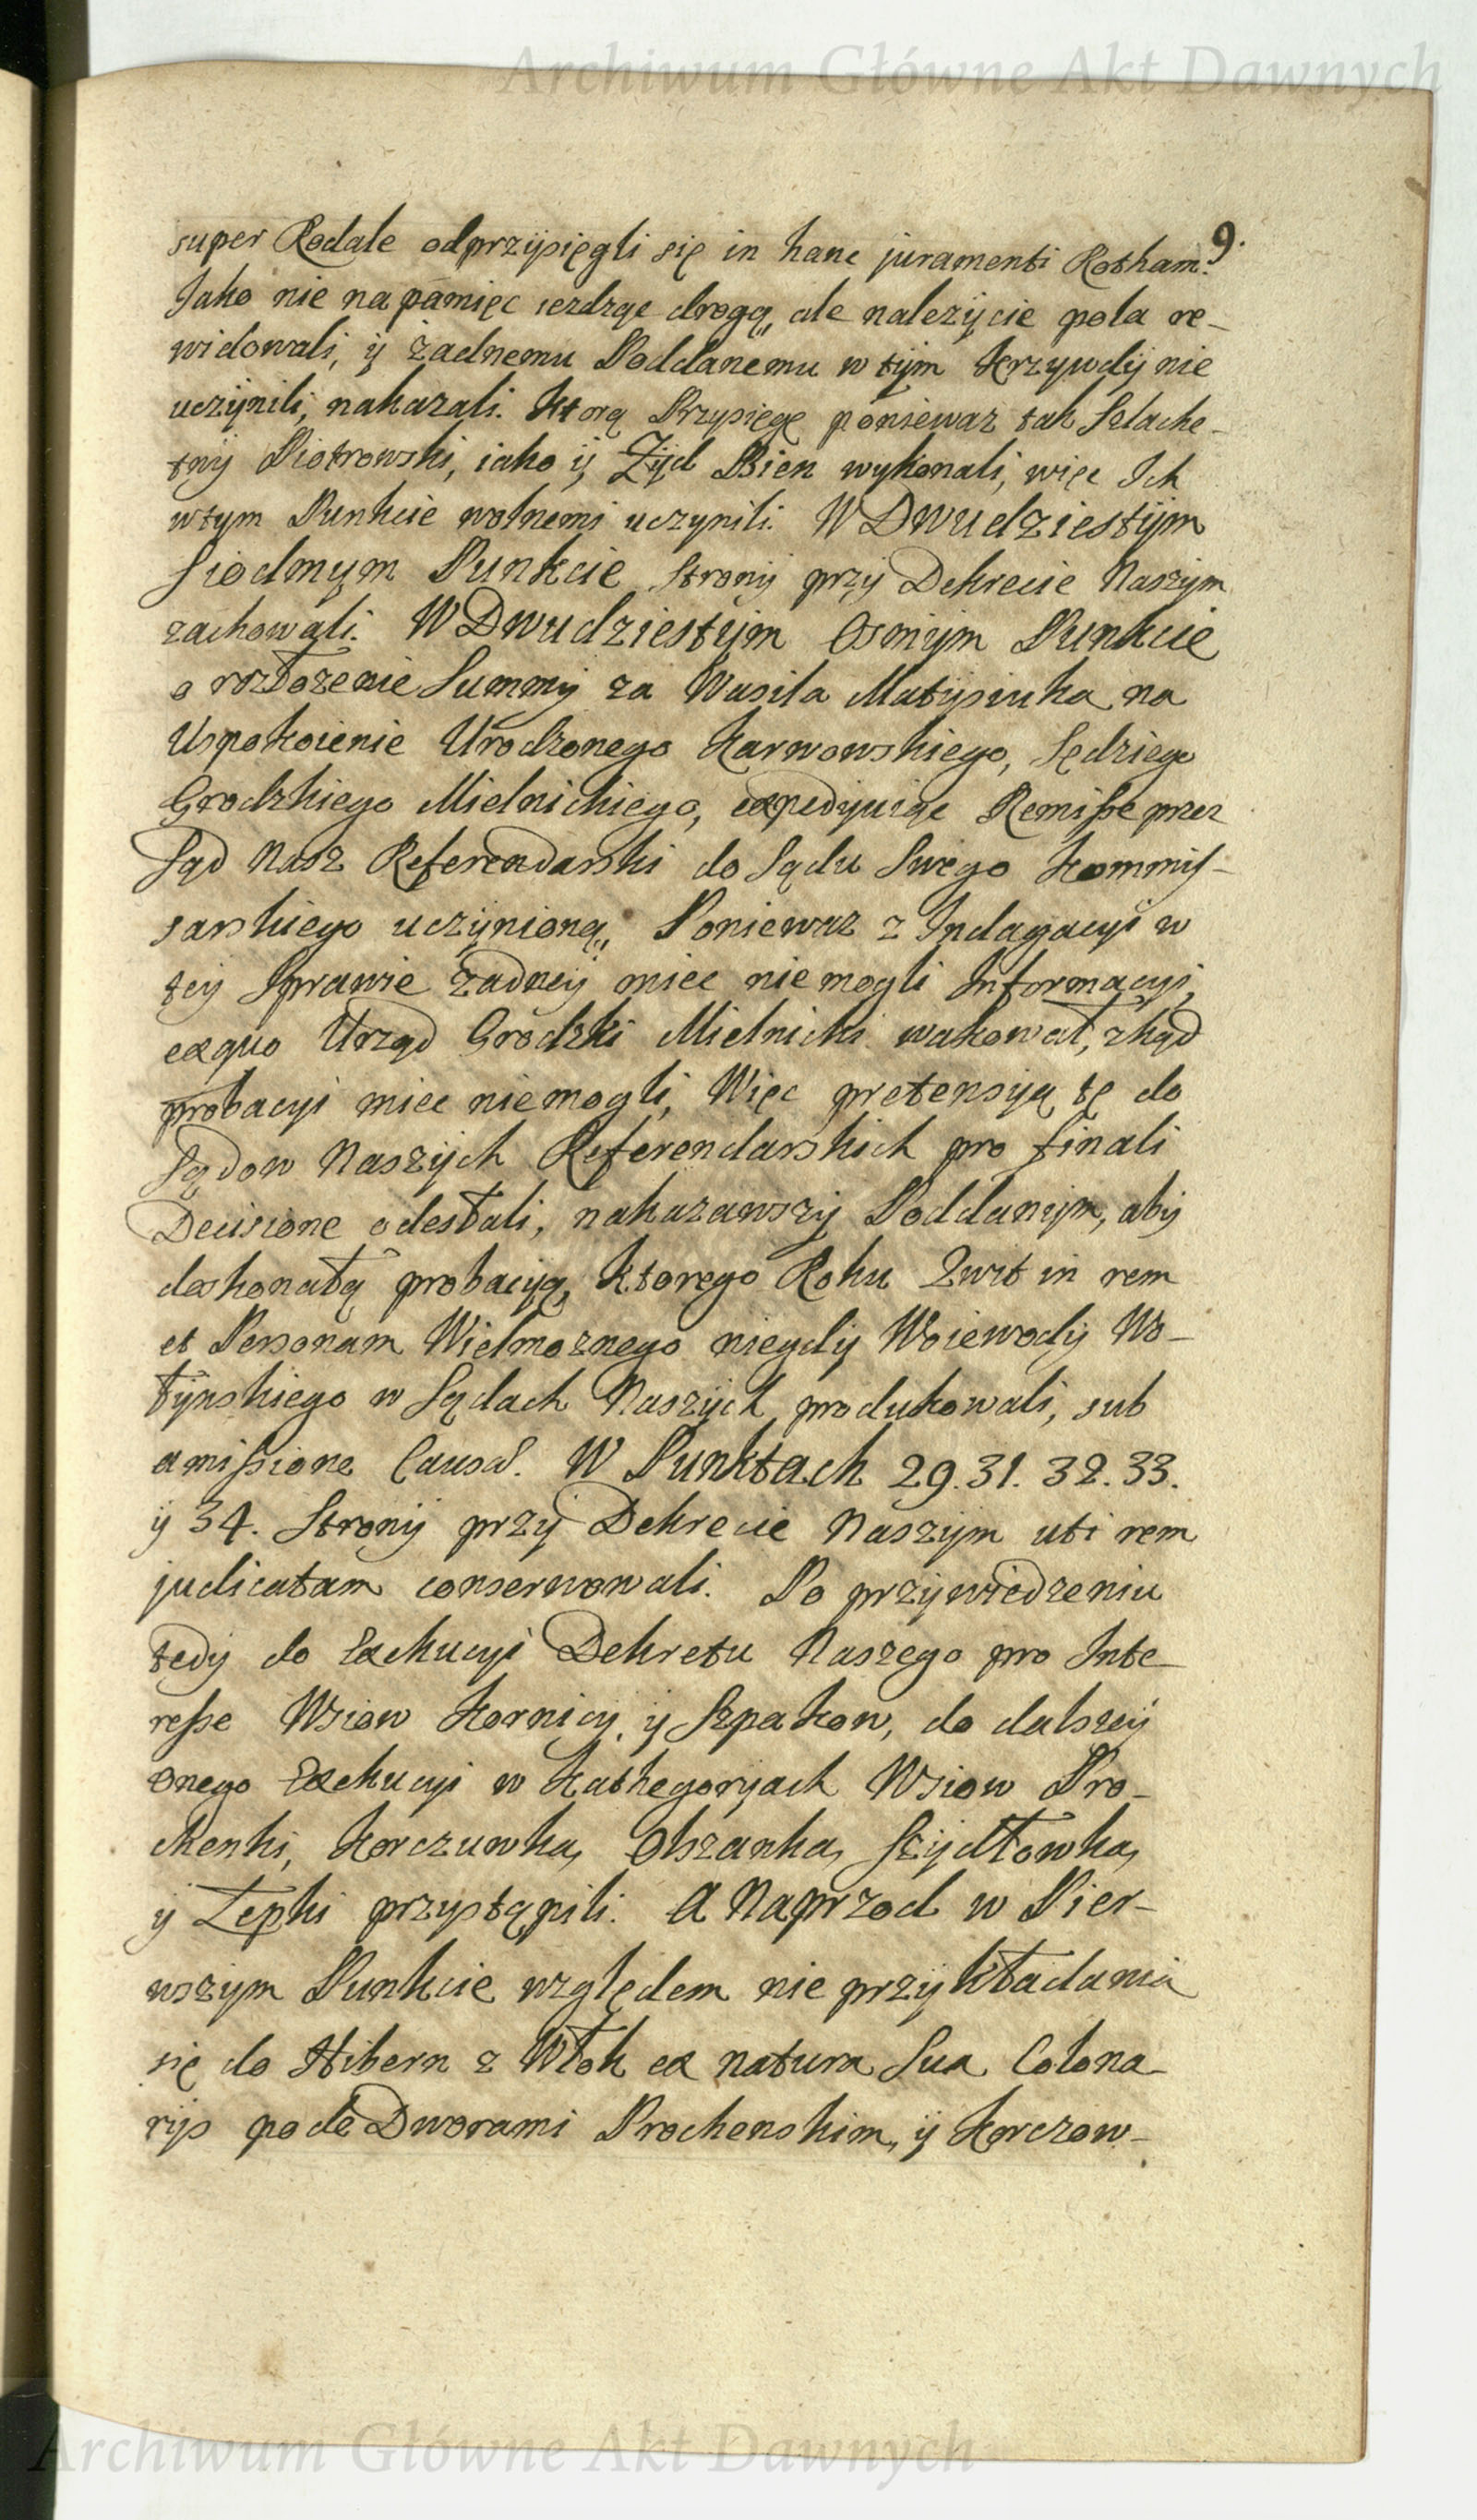 Archiwum Główne Akt Dawnych
9.
super Rodale odprzysięgli się in hanc juramenti Rotham.
Jako nie na pamięc iezdząc drogą, ale nalezÿcie pola re-
widowali, ÿ żadnemu Poddanemu w tÿm krzywdÿ nie
uczÿnili, nakazali. Ktorą Przysięgę poniewaz tak Szlache-
tnÿ Piotrowski, iako ÿ Żÿd Bien wykonali, więc Ich
w tym Punkcie wolnemi uczynili. W Dwudziestÿm
Siodmym Punkcie Stronÿ przÿ Dekrecie Naszÿm
zachowali. W Dwudziestÿm Osmÿm Punkcie
o rozłożenie Summÿ za Wasila Matÿsiuka na
Uspokoienie Urodzonego Karwowskiego, Sędziego
Grodzkiego Mielnickiego, expedÿuiąc Remissę przez
Sąd Nasz Referendarski do Sądu Swego Kommis-
sarskiego uczÿnioną, Poniewaz z Indagacyi w
teÿ Sprawie żadneÿ miec nie mogli Informacyi,
ex quo Urząd Grodzki Mielnicki wakował, zkąd
probacyi miec nie mogli, Więc pretensyą tę do
Sądow Naszÿch Referendarskich pro finali
Decisione odesłali, nakazawszÿ Poddanÿm, abÿ
doskonałą probacÿą, ktorego Roku Zwit in rem
et Personam Wielmoznego niegdÿ Woiewodÿ Wo-
łÿnskiego w Sądach Naszÿch produkowali, sub
amissione Causæ. W Punktach 29. 31. 32. 33.
ÿ 34. Stronÿ przÿ Dekrecie Naszÿm uti rem
judicatam conserwowali. Po przÿwiedzeniu
tedÿ do Exekucyi Dekretu Naszego pro Inte-
resse Wsiow Kornicy, ÿ Szpakow, do dalszeÿ
onego Exekucyi w Kathegoryach Wsiow Pro-
chenki, Korczuwka, Olszanka, Szÿdłowka,
ÿ Łepki przystąpili. A Naprzod w Pier-
wszÿm Punkcie względem nie przÿkładania
się do Hibern z Włok ex natura Sua Colona-
rÿs pode Dworami Prochenskim, ÿ Korczow-
Archiwum Główne Akt Dawnych